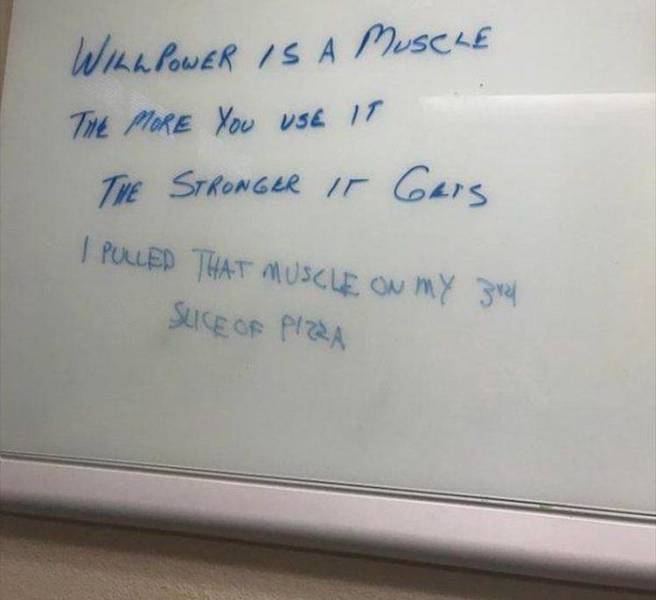 WILLPOWER IS A MUSCLE
THE MORE YOU USE IT
THE STRONGER IT GETS
I PULLED THAT MUSCLE ON MY 3rd
SLICE OF PIZZA